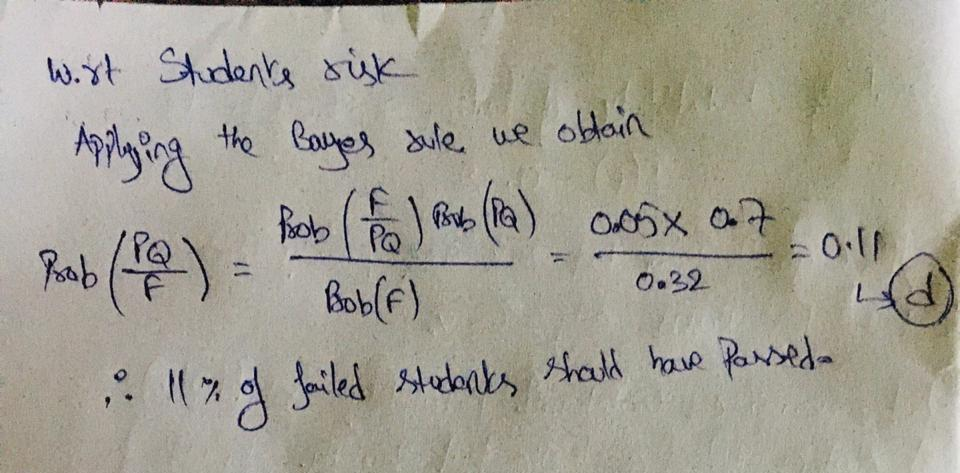 W.rt Students risk
Applying the Bayes rule we obtain
Prob (PQ/F) = Prob (F/PQ) Prob (PQ) / Prob(F) = 0.05 x 0.7 / 0.32 = 0.11 ↳ d
∴ 11 % of failed students should have Passed.